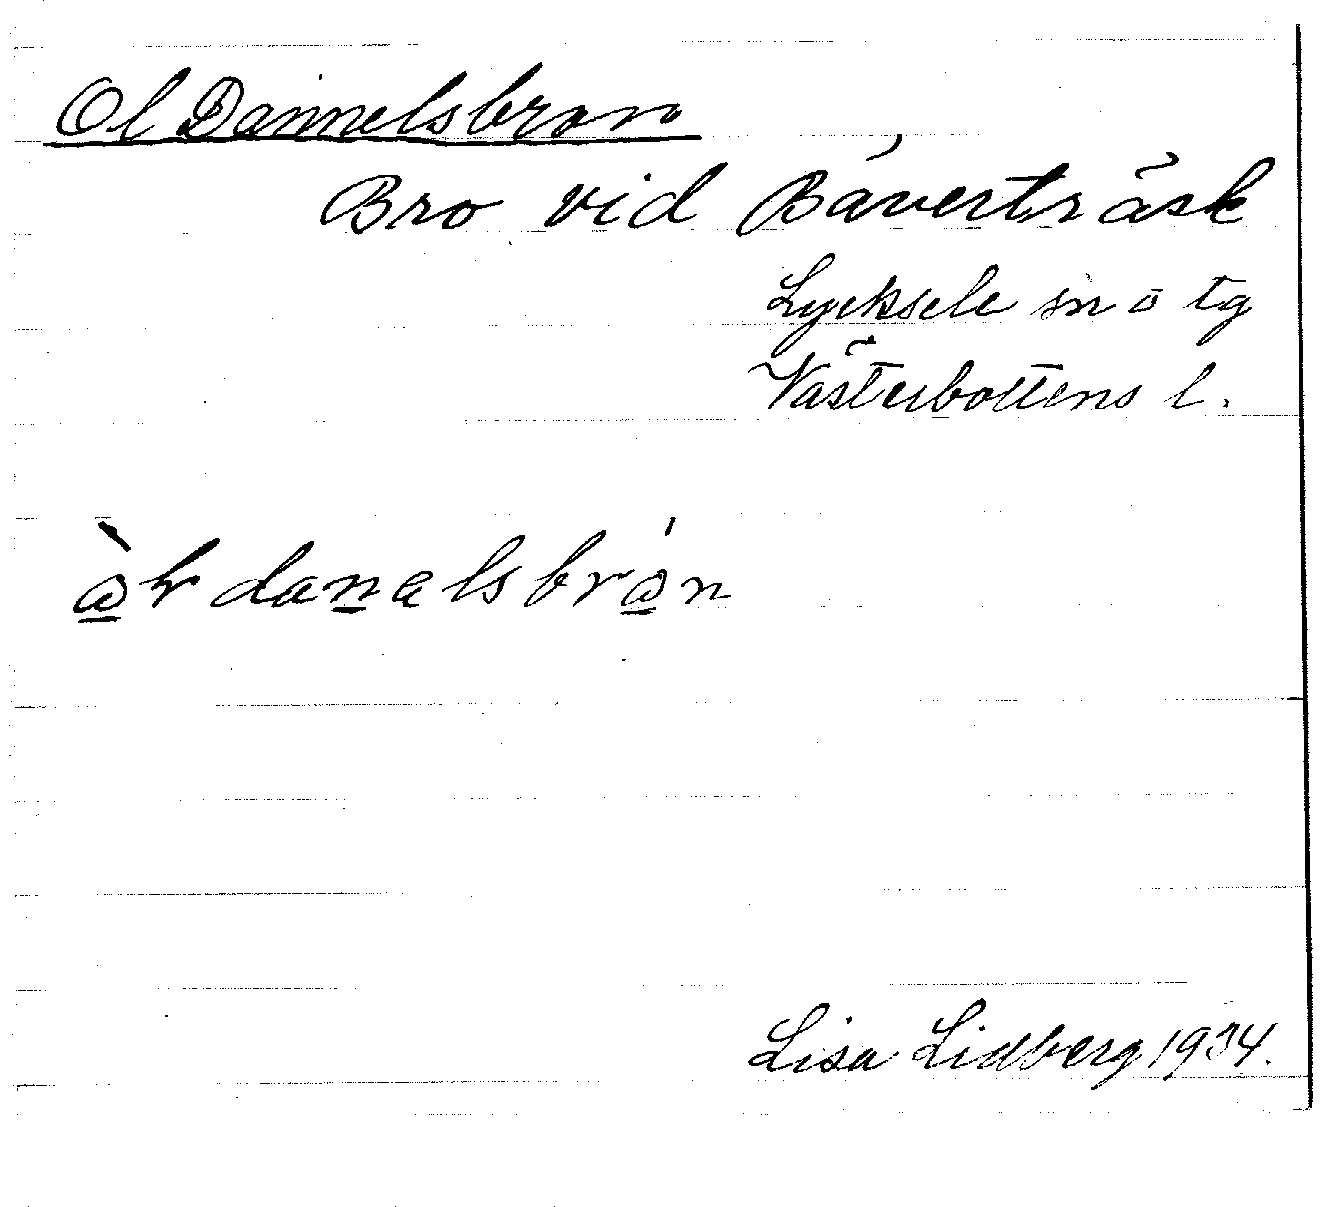 Ol Dannelsbron
Bro vid Bäverträsk
Lycksele sn o tg
Västerbottens l.
Lisa Lidberg 1934.